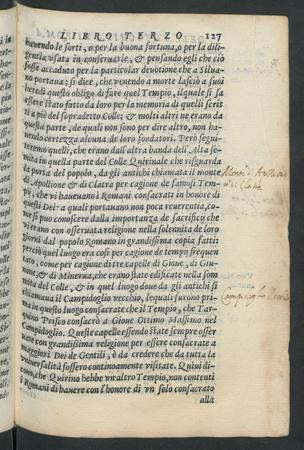 LIBRO TERZO 127
hauendo le sorti, o per la buona fortuna, o per la dili-
gentia vsata in conseruarle, & pensando egli che ciò
fosse accaduto per la particolar deuotione che a Silua-
no portaua; si dice, che venendo a morte lasciò a suoi
heredi questo obligo di fare quel Tempio, il quale si sa
essere stato fatto da loro per la memoria di quelli scrit
ti a piè del sopradetto Colle; & molti altri ne erano da
questa parte, de quali non sono per dire altro, non ha-
uendo certezza alcuna de loro fondatori. Però segui-
remo quelli, che erano dall'altra banda dell'Alta se-
mita in quella parte del Colle Quirinale che risguarda
la porta del popolo, da gli antichi chiamata il monte
d'Apolline & di Clatra per cagione de famosi Tem-
pij, che vi haueuano i Romani consacrati in honore di
questi Dei a quali portauano non poca reuerentia, co-
me si puo conoscere dalla importanza de sacrificij che
vi erano con osseruata religione nella solennita de loro
giorni dal popolo Romano in grandissima copia fatti:
Perciò quel luogo era così per cagione de tempij frequen
tato, come per cagione di tre capelle di Gioue, di Giu-
none, & di Minerua, che erano state edificate nella som
mita del Colle, & in quel luogo doue da gli antichi si
chiamaua il Campidoglio vecchio, lequali furono pri-
ma in questo luogo consacrate che il Tempio, che Tar-
quino Prisco consacrò a Gioue Ottimo Massimo nel
Campidoglio. Queste capelle essendo state sempre osser
uate con grandissima religione per essere consacrate a
maggiori Dei de Gentili, è da credere che da tutta la
vniuersalità fossero continoamente visitate. Quiui di-
cono, che Quirino hebbe vn altro Tempio, non contenti
i Romani di hauere con l'honore di vn solo consacrato
alla
Monte d'Apolline
& di Clatra
Campidoglio Vecchio